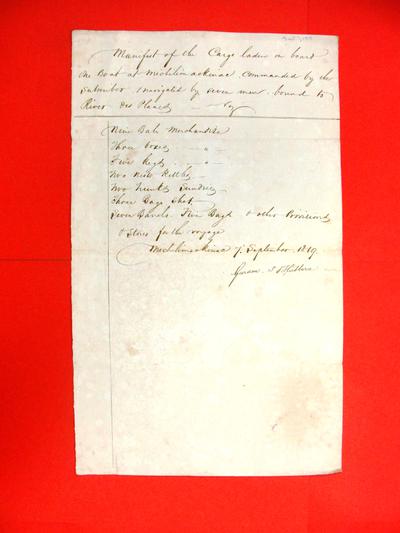 Manifest of the Cargo laden on board
One Boat at Michilimackinac commanded by the
Subscriber & navigated by seven men bound to
River des Plaines
Nine Bale Merchandise
Three boxes
Five Kegs
Two Nests Kettles
Two Trunks Sundries
Three Bags Shot
Seven Barrels Five Bags & other Provisions
& Stores for the voyage
Michilimackinac 7. September 1819